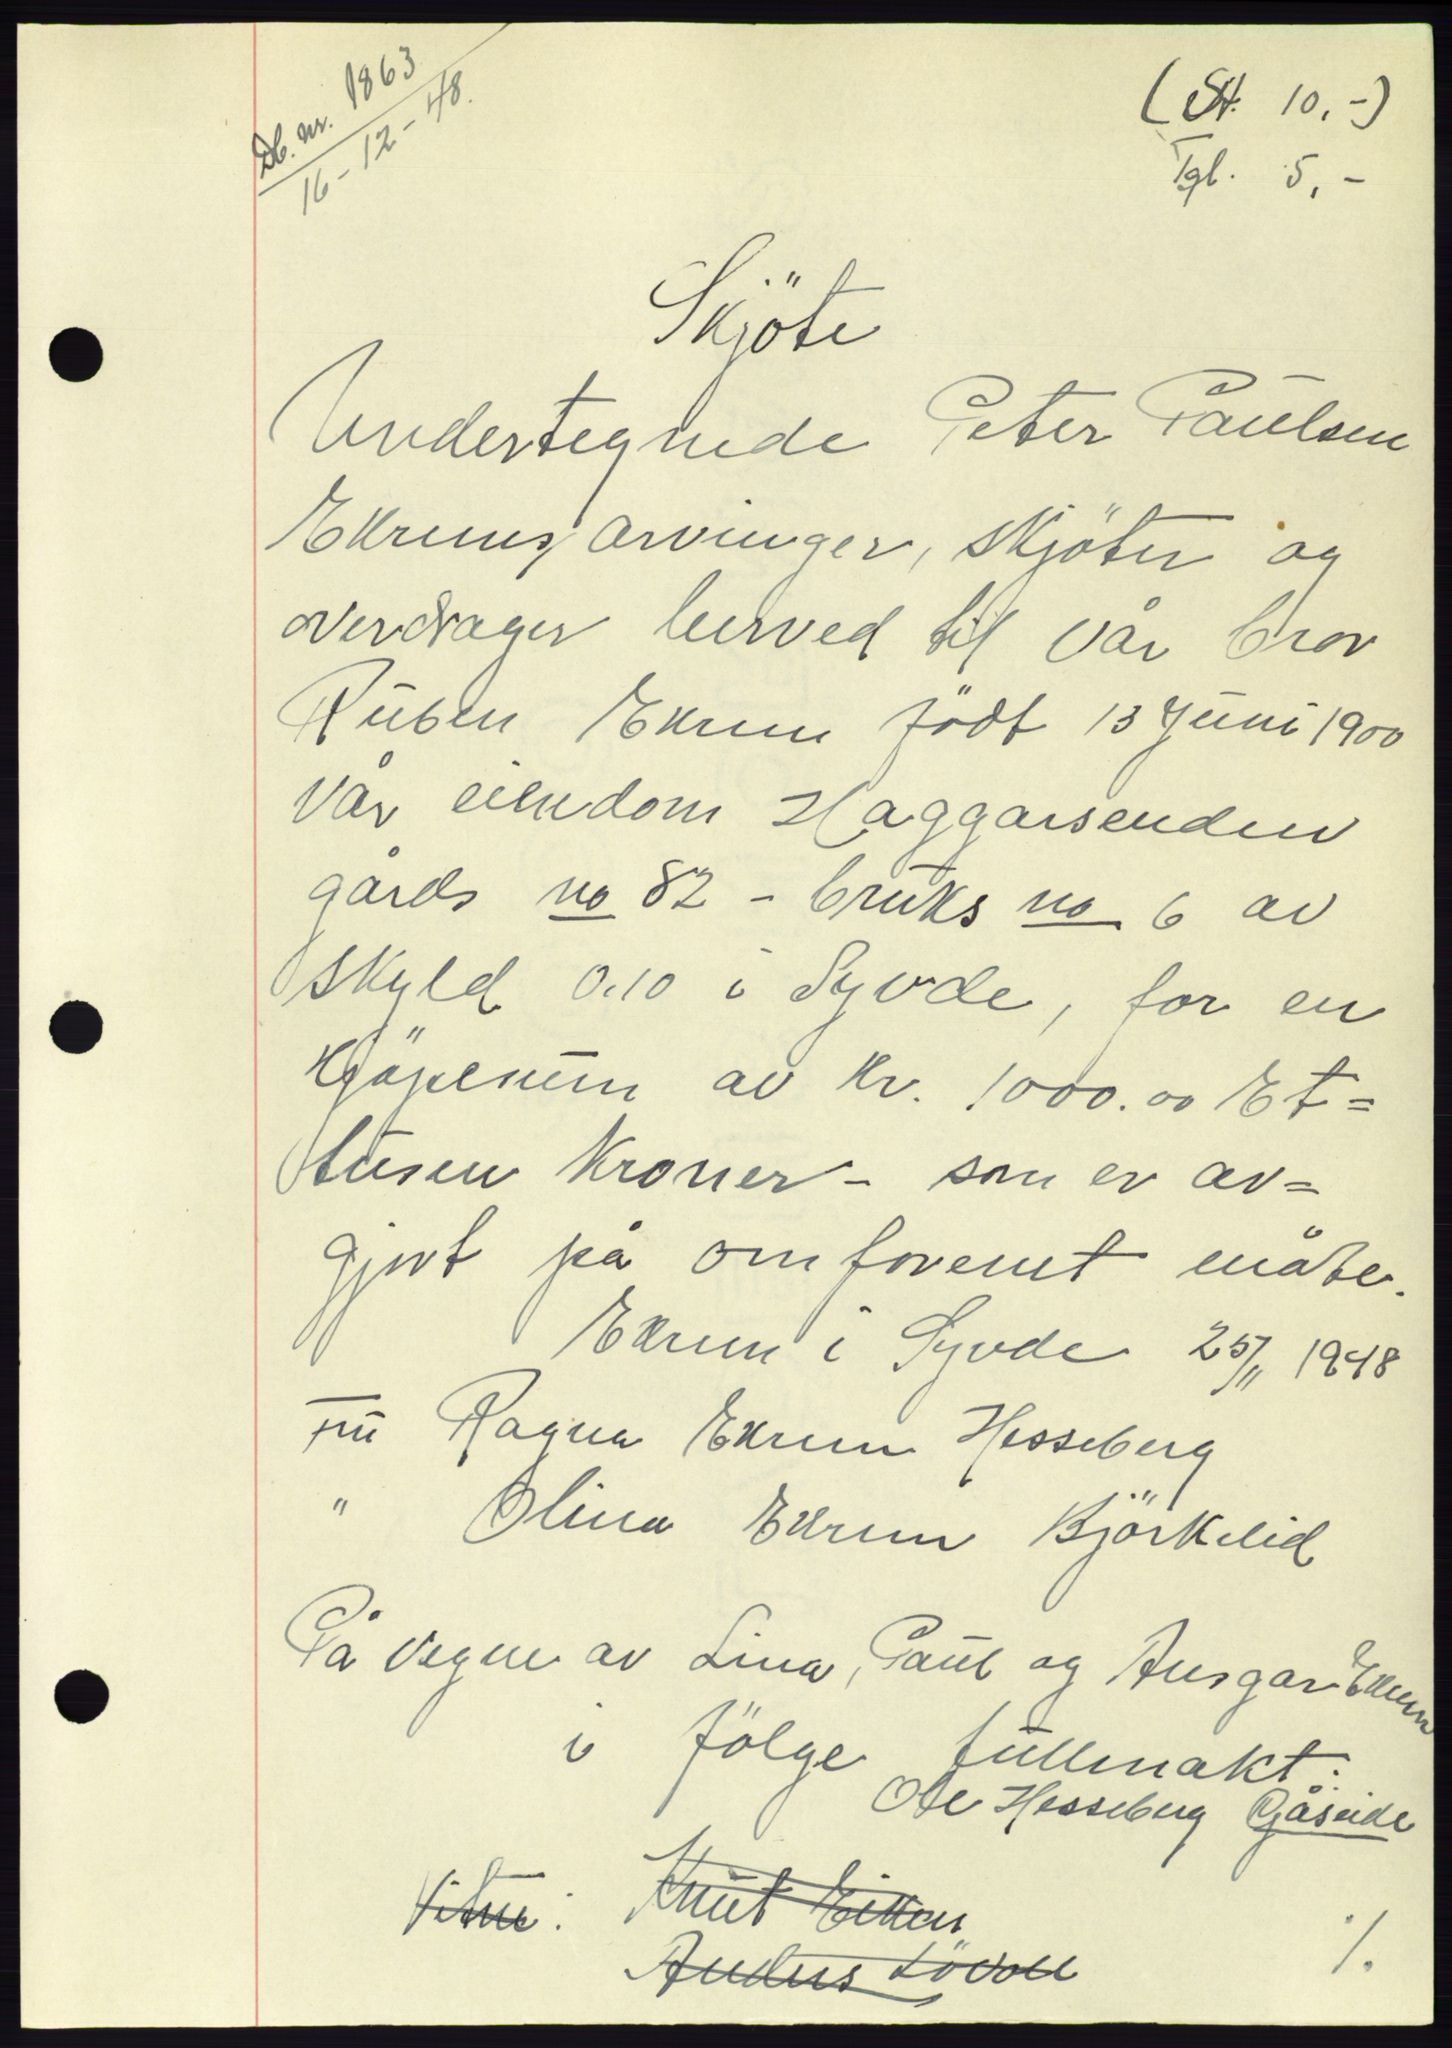 Db. nr. 1863
16-12-48.
(St. 10,-)
Tgl. 5,-
Skjöte
Undertegnede Peter Paulsen
Ekrems arvinger, skjöter og
overdrager herved til vår bror
Ruben Ekrem födt 13 Juni 1900
vår eiendom Haggarsenden
gårds no 82 - bruks no 6 av
skyld 0.10 i Syvde, for en
kjöpesum av kr. 1000.00 Et=
tusen kroner - som er av=
gjort på omforemt måte.
Ekrem i Syvde 25/11 1948
Fru Ragna Ekrem Hesseberg
" Olina Ekrem Björkelid
På vegne av Lina, Paul og Ansgar Ekrem
i fölge fullmakt:
Ole Hesseberg Gåseide
Vitne: Knut Eiken
Anders Lövoll
%.